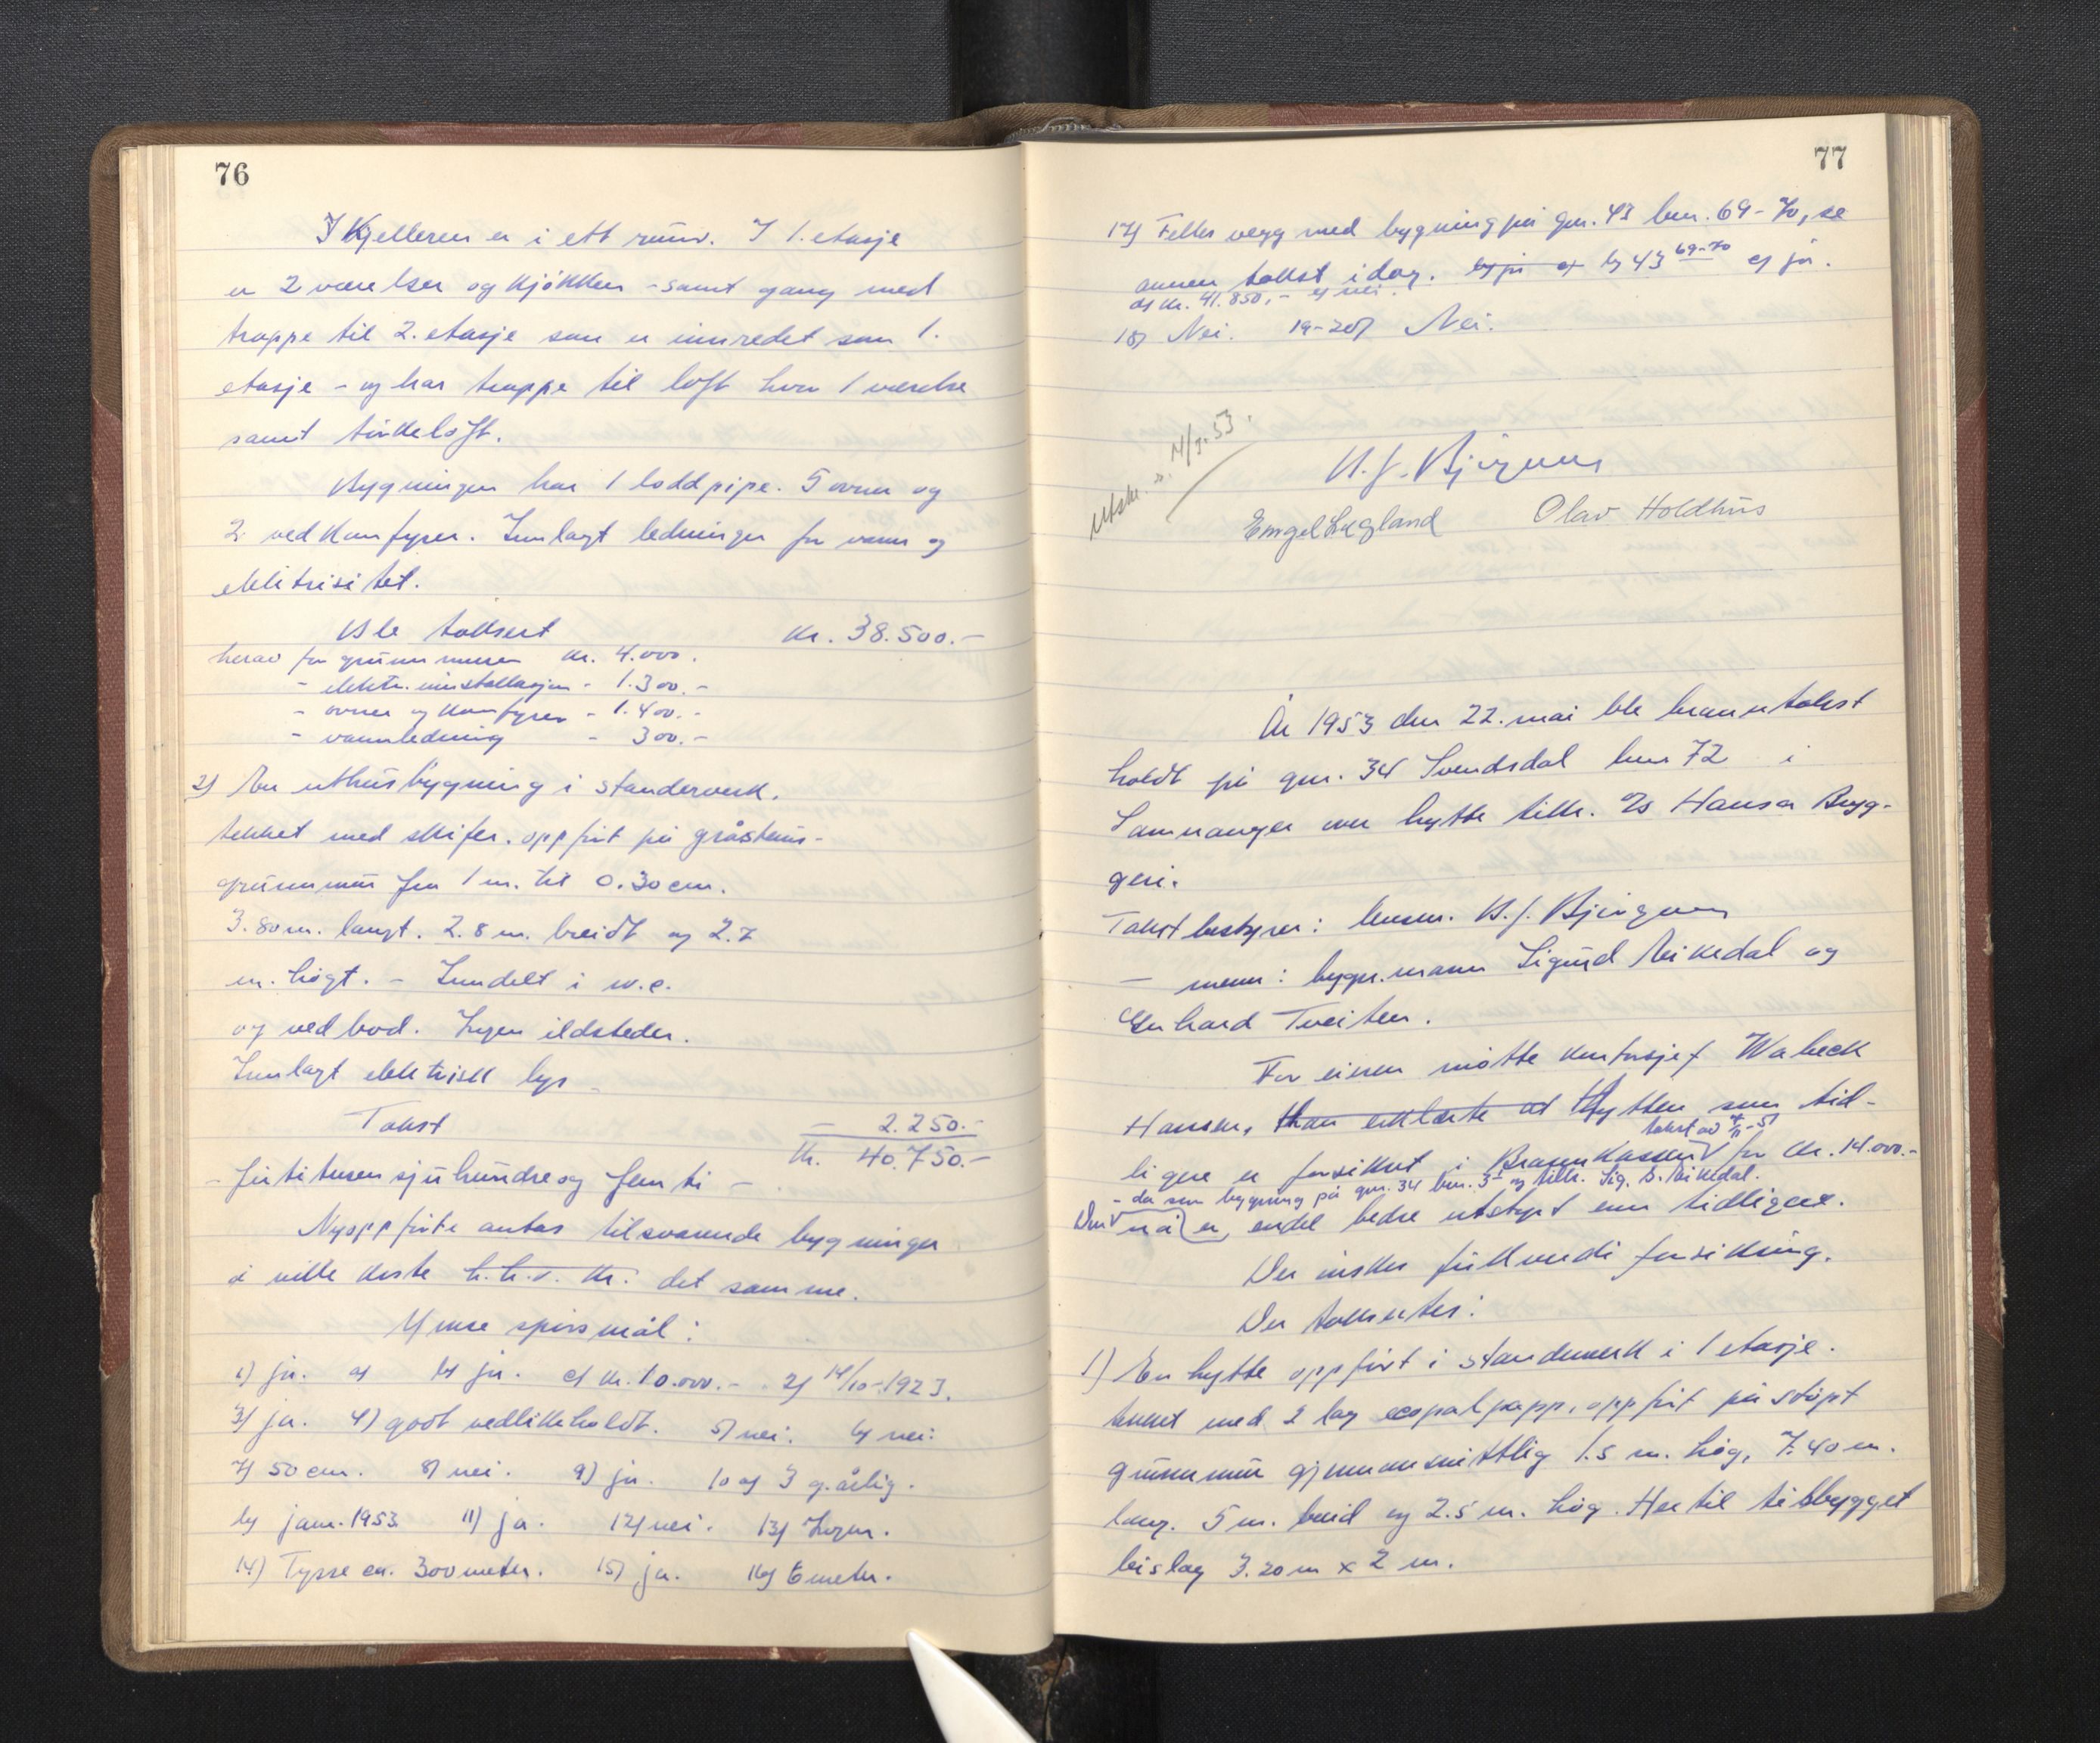 76
I Kjelleren er i ett rum. I 1. etasje
er 2 værelser og kjøkken - samt gang med
trappe til 2. etasje som er innredet som 1.
etasje - og har trappe til loft hvor 1 værelse
samt tørkeloft.
Bygningen har 1 loddpipe. 5 ovner og
2 vedkomfyrer. Innlagt ledninger for vann og
elektrisitet.
Ble taksert kr. 38.500.-
herav for grunnmuren kr. 4.000.
- elektr. installasjon - 1.300.-
- ovner og komfyrer - 1.400.-
- vannledning - 300.-
2) En uthusbygning i standerverk.
tekket med skifer. oppført på gråsteins-
grunnmur fra 1 m. til 0.30 cm.
3.80 m. langt. 2.8 m. breidt og 2.7
m. høgt. - Inndelt i w.c.
og vedbod. Ingen ildsteder.
Innlagt elektrisk lys
Takst - 2.250.-
kr. 40.750.-
- førtitusensjuhundreogfemti -
Nyoppførte antas tilsvarende bygninger
å ville koste h.h.v. kr. det samme.
Ymse spørsmål:
1) ja. a) b) ja. c) kr. 10.000.- 2) 14/10-1923.
3) ja. 4) godt vedlikeholdt. 5) nei. 6) nei.
7) 50 cm. 8) nei. 9) ja. 10 a) 3 g. årlig.
b) jan. 1953 11) ja. 12) nei. 13) Ingen.
14) Tysse ca. 300 meter. 15) ja. 16) 6 meter.
77
17) Felles vegg med bygning på gnr. 43 bnr. 69-70, se
annen takst idag. b) ja c) b) 43 69-70 c) ja.
d) kr. 41.850,- e) nei.
18) Nei. 19-20) Nei.
Utskr. s. 4/7-53.
N. J. Bjørgum
Engel Lægland Olav Holdhus
År 1953 den 22. mai ble branntakst
holdt på gnr. 34 Svendsdal bnr 72 i
Samnanger over hytte tilh. A/S Hansa Bryg-
geri.
Takstbestyrer: lensm. N. J. Bjørgum
- menn: byggm. mann Sigurd Eikedal og
Gerhard Tveiten.
For eieren møtte kontorsjef Wabeck
Hansen, Han erklærte at Hytten som tid-
takst av 7/11-51
ligere er forsikret i Brannkassen for kr. 14.000.-
- da som bygning på gnr. 34 bnr. 3 og tilh. Sig. S. Eikedal.
Den nå er, endel bedre utstyrt enn tidligere.
Der ønskes fullverdi forsikring.
Der takseres:
1) En hytte oppført i standerverk i 1 etasje.
tekket med 2 lag ecopalpapp, oppført på støpt
grunnmur gjennomsnittlig 1.5 m. høg, 7.40 m.
lang. 5 m. breid og 2.5 m. høg. Hertil tilbygget
bislag 3.20 m x 2 m.